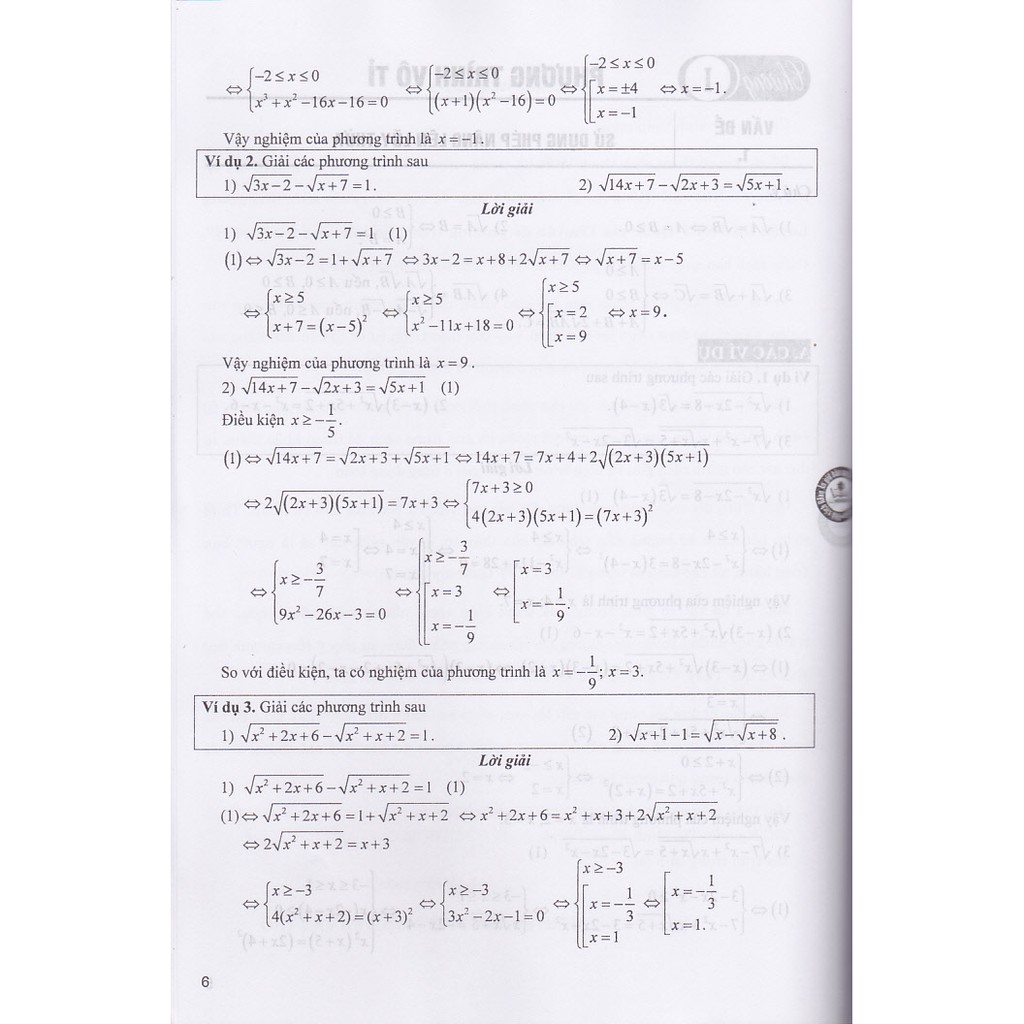 ⇔ {−2 ≤ x ≤ 0; x³ + x² − 16x − 16 = 0 ⇔ {−2 ≤ x ≤ 0; (x+1)(x² − 16) = 0 ⇔ {−2 ≤ x ≤ 0; [x = ±4; x = −1 ⇔ x = −1.
Vậy nghiệm của phương trình là x = −1.
Ví dụ 2. Giải các phương trình sau
1) √(3x−2) − √(x+7) = 1. 2) √(14x+7) − √(2x+3) = √(5x+1).
Lời giải
1) √(3x−2) − √(x+7) = 1 (1)
(1) ⇔ √(3x−2) = 1 + √(x+7) ⇔ 3x − 2 = x + 8 + 2√(x+7) ⇔ √(x+7) = x − 5
⇔ {x ≥ 5; x + 7 = (x−5)² ⇔ {x ≥ 5; x² − 11x + 18 = 0 ⇔ {x ≥ 5; [x = 2; x = 9 ⇔ x = 9.
Vậy nghiệm của phương trình là x = 9.
2) √(14x+7) − √(2x+3) = √(5x+1) (1)
Điều kiện x ≥ −1/5.
(1) ⇔ √(14x+7) = √(2x+3) + √(5x+1) ⇔ 14x + 7 = 7x + 4 + 2√((2x+3)(5x+1))
⇔ 2√((2x+3)(5x+1)) = 7x + 3 ⇔ {7x + 3 ≥ 0; 4(2x+3)(5x+1) = (7x+3)²
⇔ {x ≥ −3/7; 9x² − 26x − 3 = 0 ⇔ {x ≥ −3/7; [x = 3; x = −1/9 ⇔ [x = 3; x = −1/9.
So với điều kiện, ta có nghiệm của phương trình là x = −1/9; x = 3.
Ví dụ 3. Giải các phương trình sau
1) √(x²+2x+6) − √(x²+x+2) = 1. 2) √(x+1) − 1 = √(x − √(x+8)).
Lời giải
1) √(x²+2x+6) − √(x²+x+2) = 1 (1)
(1) ⇔ √(x²+2x+6) = 1 + √(x²+x+2) ⇔ x² + 2x + 6 = x² + x + 3 + 2√(x²+x+2)
⇔ 2√(x²+x+2) = x + 3
⇔ {x ≥ −3; 4(x²+x+2) = (x+3)² ⇔ {x ≥ −3; 3x² − 2x − 1 = 0 ⇔ {x ≥ −3; [x = −1/3; x = 1 ⇔ [x = −1/3; x = 1.
6